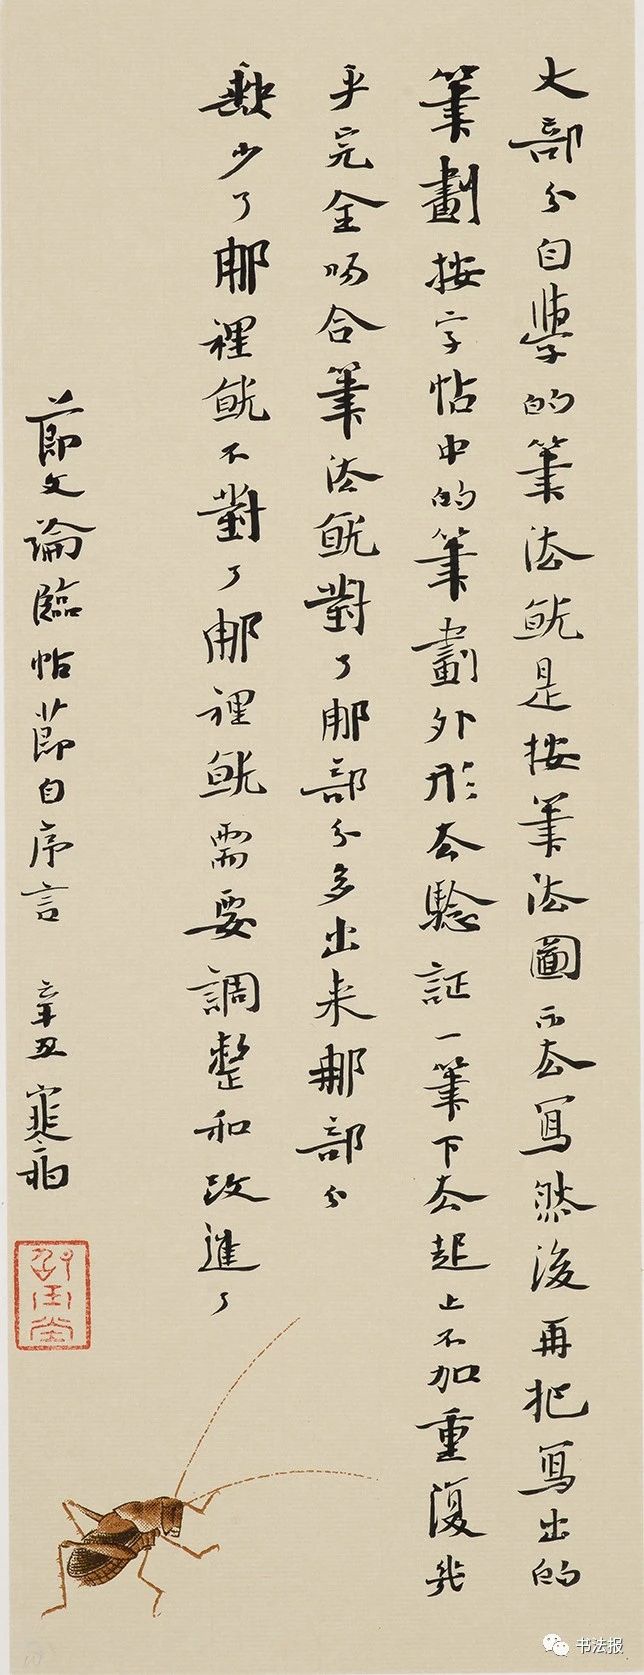 大部分自學的筆法就是按筆法圖示去寫然後再把寫出的
筆劃按字帖中的筆劃外形去驗証一筆下去起止不加重復幾
乎完全吻合筆法就對了那部分多出來那部分
缺少了那裡就不對了那裡就需要調整和改進了
節文論臨帖節自序言 辛丑寒雨
書法报